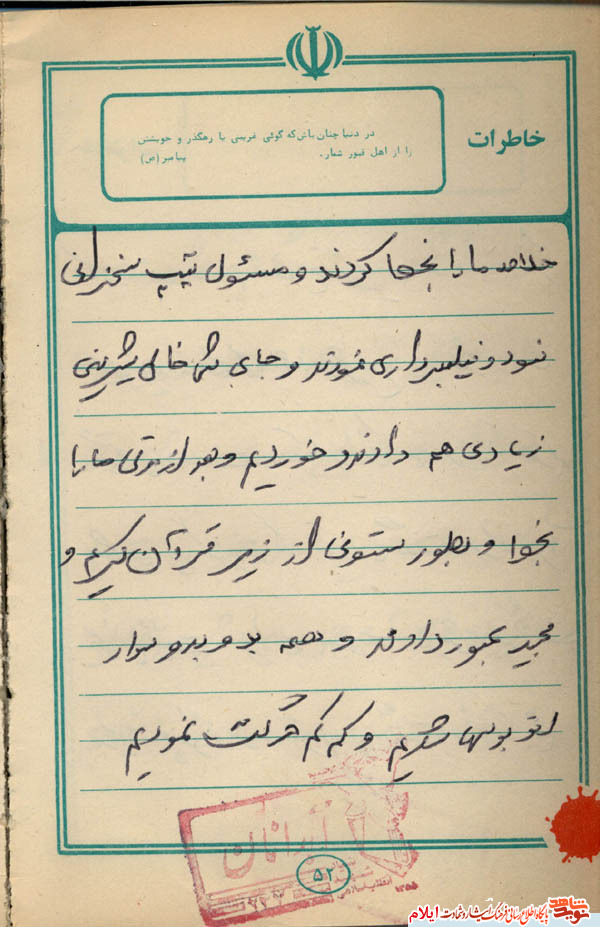 خاطرات
در دنیا چنان باش که گوئی غریبی یا رهگذر و خویشتن
را از اهل قبور شمار. پیامبر (ص)
خلاصه ما را بخط کردند و مسئول تیپ سخنرانی
نمود و فیلمبرداری نمودند و جای شما خالی شیرینی
زیادی هم دادند و خوردیم و بعد از مدتی ما را
بخط و بطور ستونی از زیر قرآن کریم و
مجید عبور دادند و همه بدو بدو سوار
اتوبوسها شدیم و کم کم حرکت نمودیم
آبدانان
انقلاب اسلامی
۵۲
نوید شاهد
پایگاه اطلاع رسانی فرهنگ ایثار و شهادت ایلام